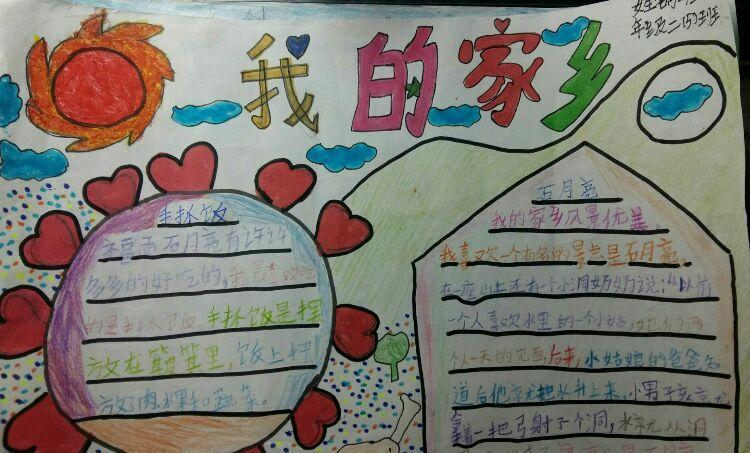 我的家乡
年级二(5)班
手抓饭
石月亮有许许
多多的好吃的,我最喜欢吃
的是手抓饭 手抓饭是摆
放在簸箕里,饭上摆
石月亮
我的家乡风景优美,
我喜欢一个有名的景点是石月亮。
在一座山上还有一个小洞奶奶说:从前
一个人喜欢水里的一个小姑
天的见面,后来,小姑娘的爸爸知
道后他就把水升上来,小男子
拿着一把弓射了一个洞,水就从洞